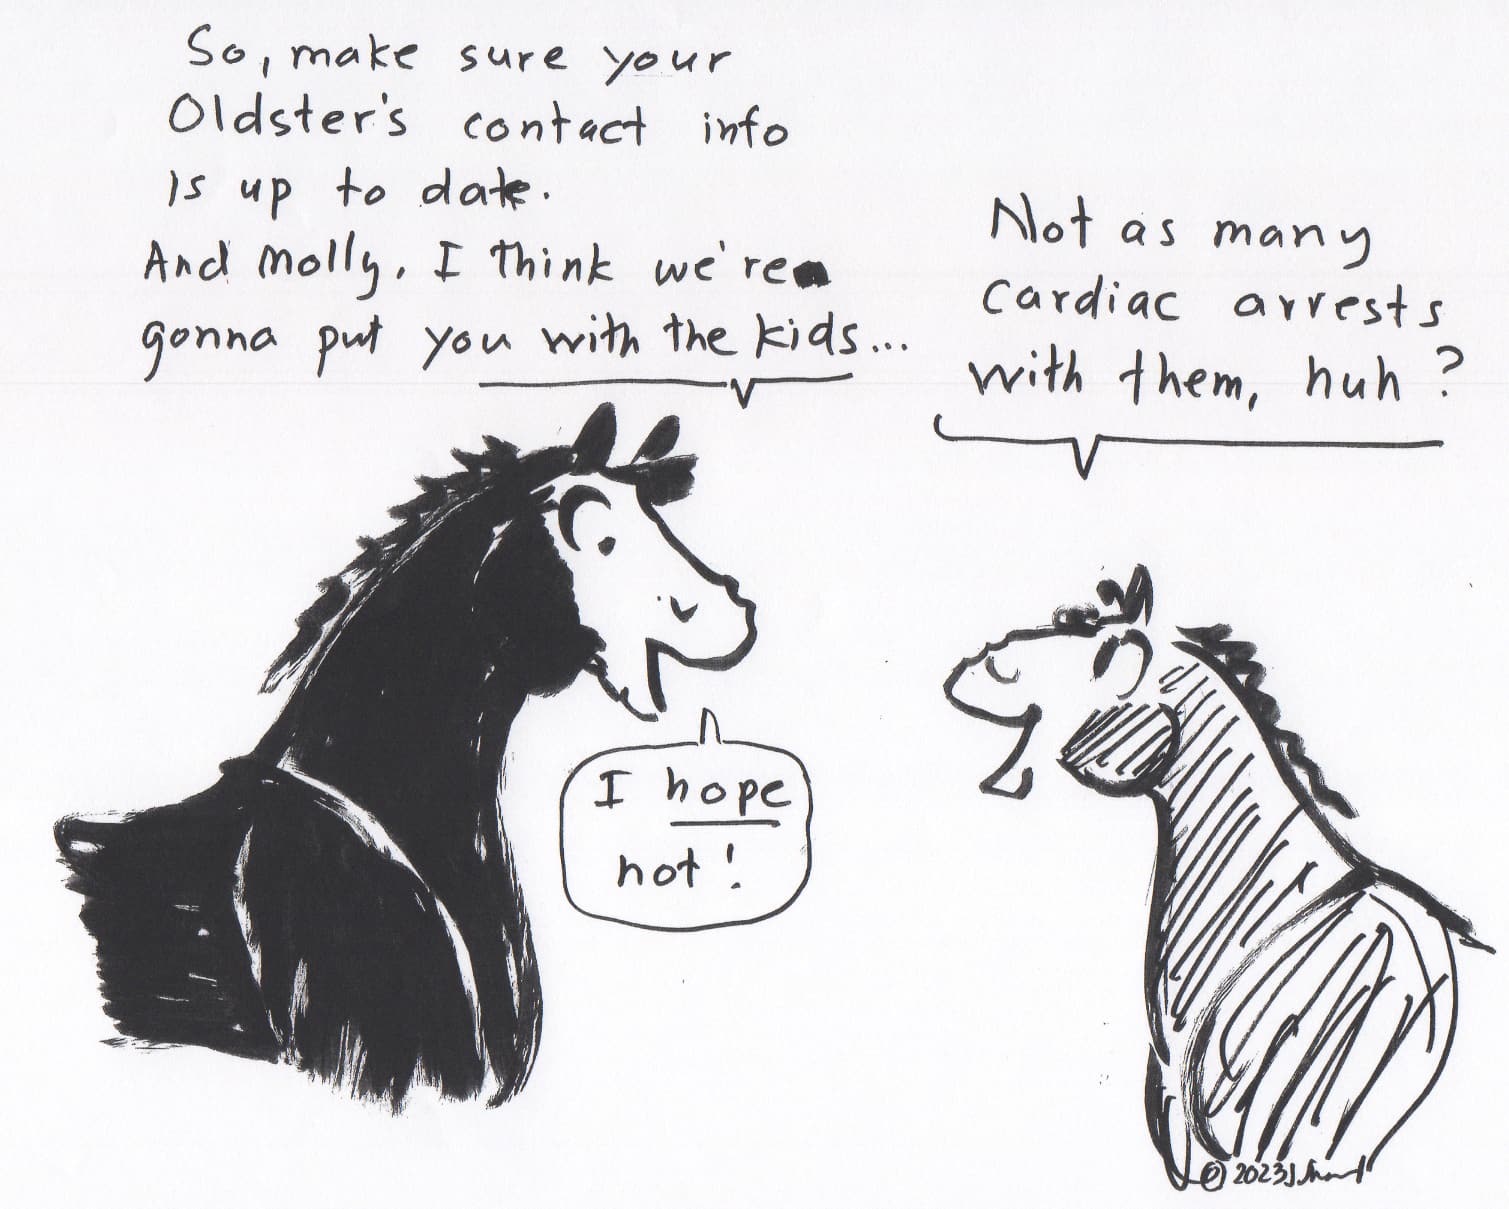 So, make sure your
Oldster's contact info
Is up to date.
And Molly, I think we're
gonna put you with the kids...
Not as many
cardiac arrests
with them, huh?
I hope
not!
© 2023